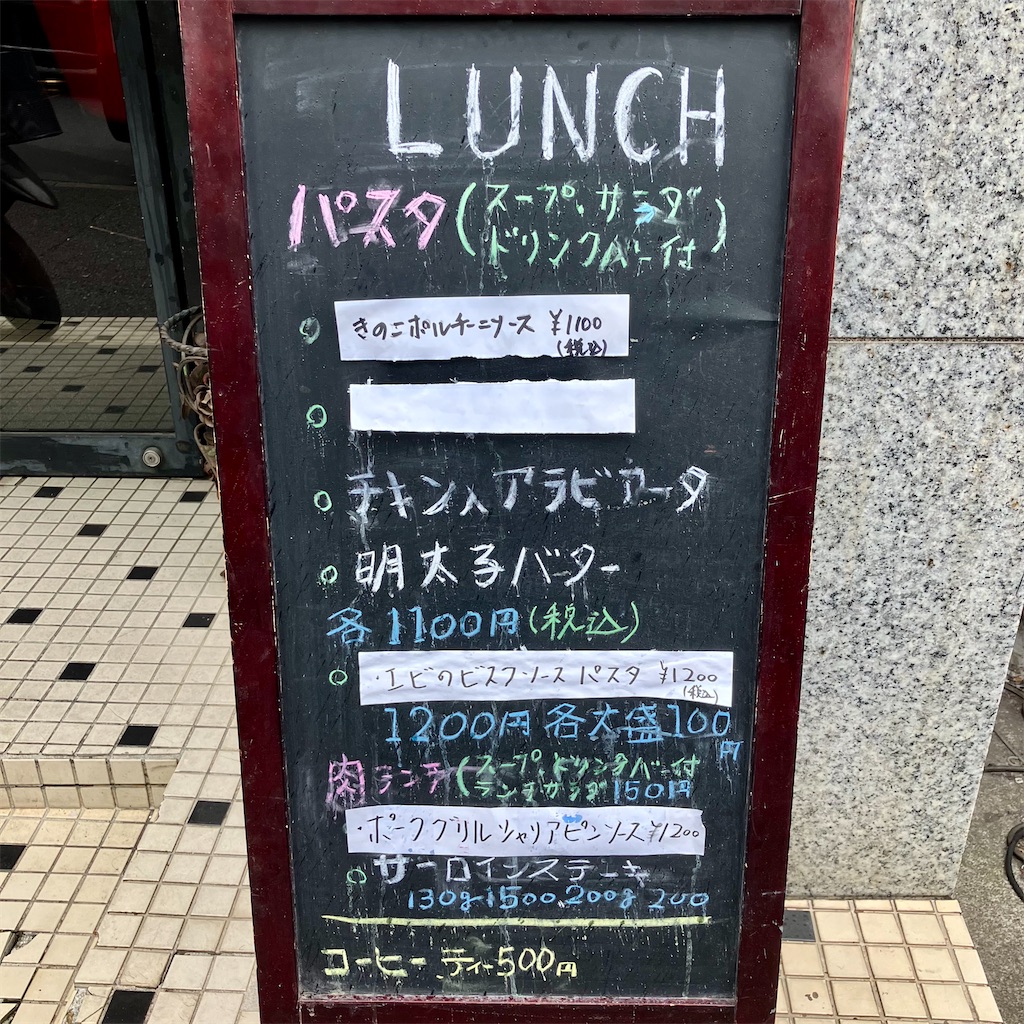 LUNCH
パスタ(スープ、サラダ
ドリンクバー付)
きのこポルチーニソース ¥1100
(税込)
チキン入アラビアータ
明太子バター
各1100円(税込)
・エビのビスクソースパスタ ¥1200
(税込)
1200円 各大盛100円
肉ランチ(スープ、ドリンクバー付
ランチサラダ150円
・ポークグリルシャリアピンソース¥1200
サーロインステーキ
130g 1500 200g 200
コーヒー、ティー500円